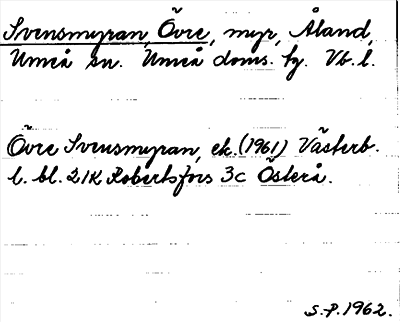 Svensmyran, Övre, myr, Åland,
Umeå sn. Umeå doms. fg. Vb. l.
Övre Svensmyran, ek. (1961) Västerb.
l. bl. 21K Robertsfors 3c Österå.
S.P. 1962.